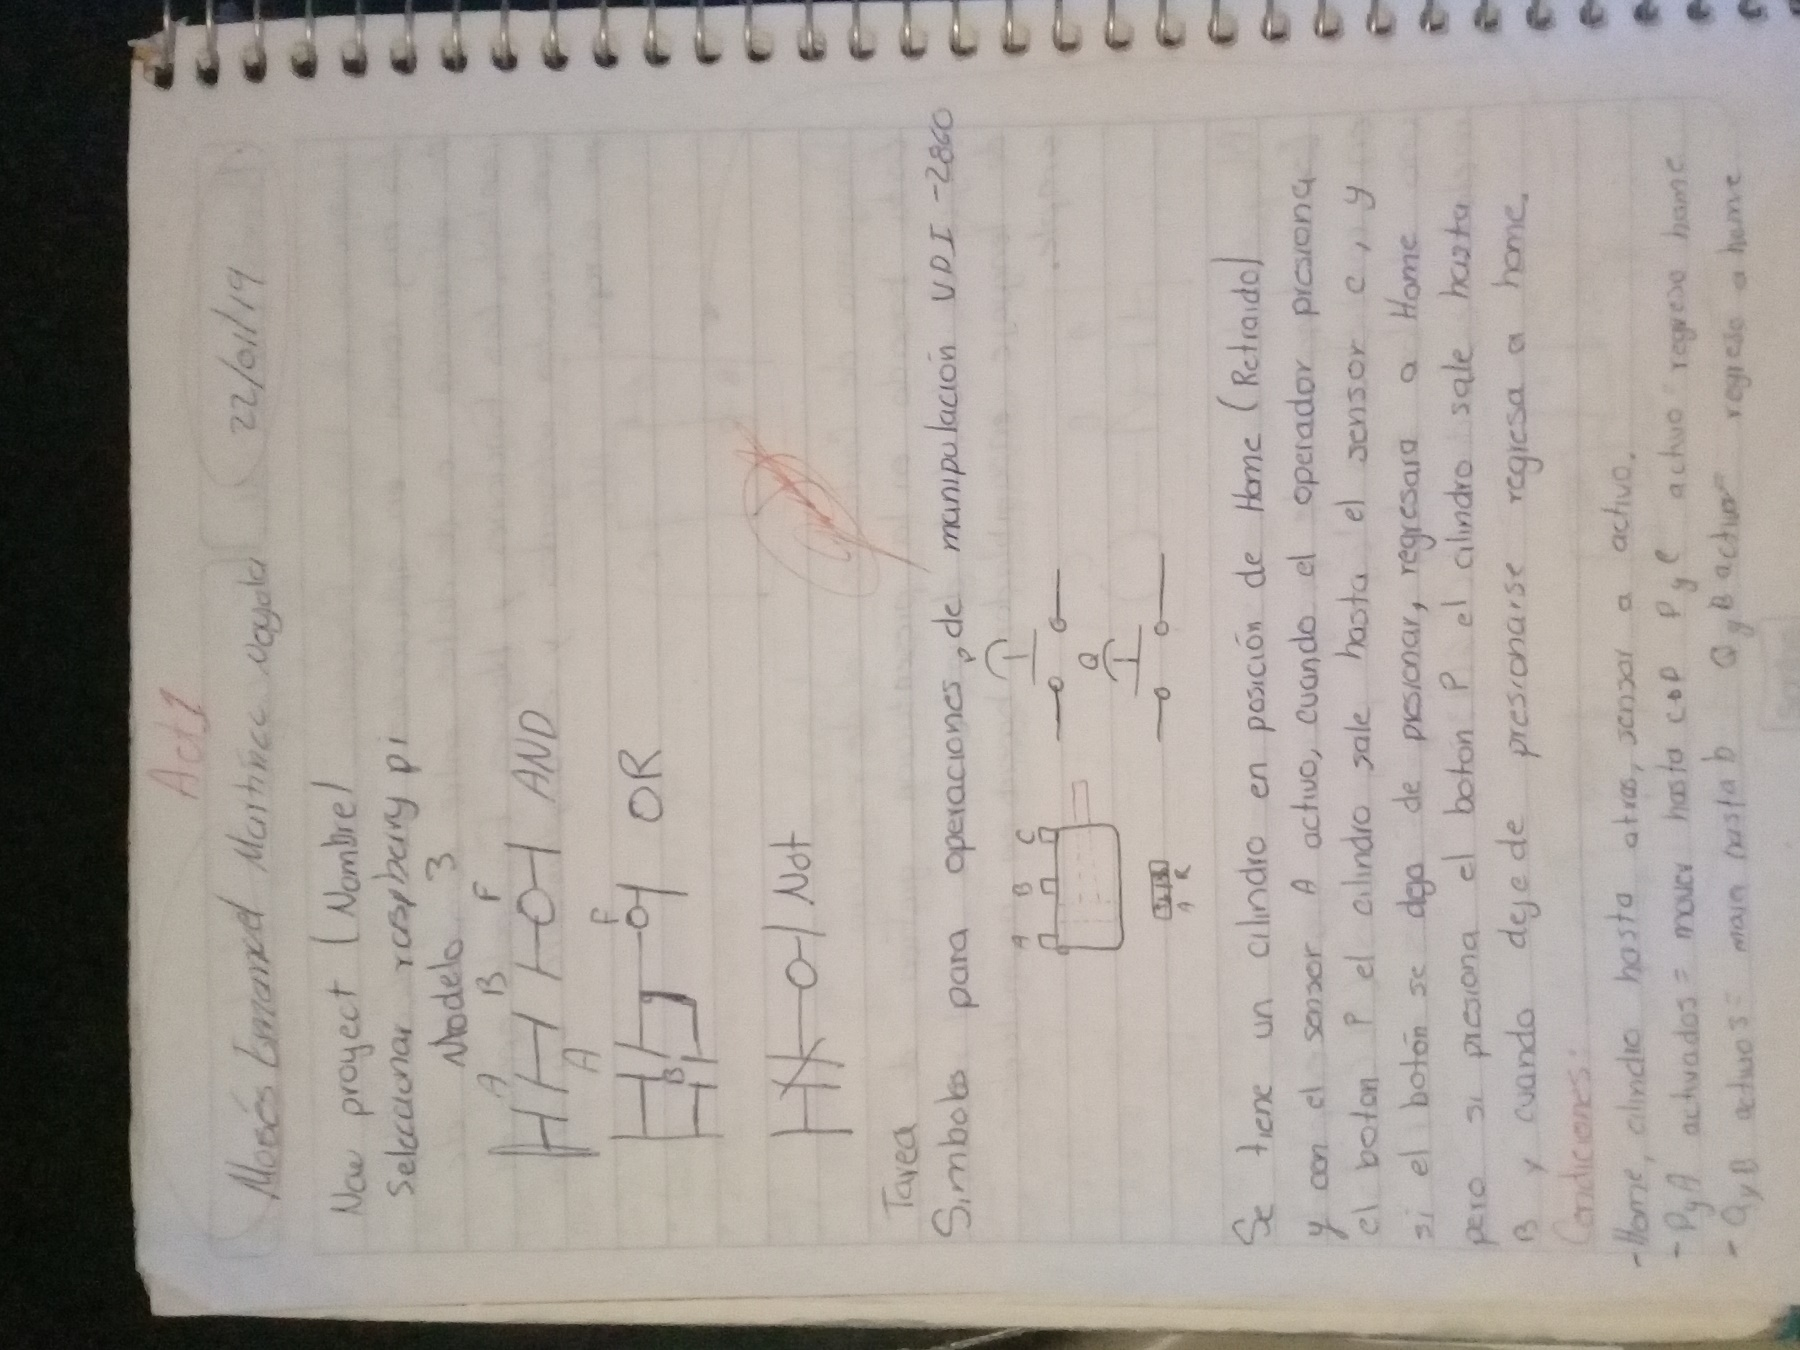 Act 1
Moisés Emanuel Martínez Noyola 22/01/19
New proyect (Nombre)
Seleccionar raspberry pi
Modelo 3
A B F
AND
A
F
B
OR
Not
Tarea
Simbolos para operaciones de manipulación VDI-2860
P
A B C
Q
A R
Se tiene un cilindro en posición de Home (Retraido)
y con el sensor A activo, cuando el operador presiona
el boton P el cilindro sale hasta el sensor C, y
si el botón se deja de presionar, regresara a Home
pero si presiona el botón P el cilindro sale hasta
B y cuando deje de presionarse regresa a home.
Condiciones:
-Home, cilindro hasta atras, sensor a activo.
- P y A activados = mover hasta P y C activo regreso home
- Q y B activos = hasta b Q y B activo regreso a home